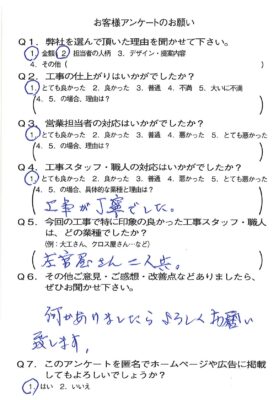 お客様アンケートのお願い
Q1．弊社を選んで頂いた理由を聞かせて下さい。
1．金額 2．担当者の人柄 3．デザイン・提案内容
4．その他（
Q2．工事の仕上がりはいかがでしたか？
1．とても良かった 2．良かった 3．普通 4．不満 5．大いに不満
4．5．の場合、理由は？
Q3．営業担当者の対応はいかがでしたか？
1．とても良かった 2．良かった 3．普通 4．悪かった 5．とても悪かった
4．5．の場合、理由は？
Q4．工事スタッフ・職人の対応はいかがでしたか？
1．とても良かった 2．良かった 3．普通 4．悪かった 5．とても悪かった
4．5．の場合、具体的な業種と理由は？
工事が丁寧でした。
Q5．今回の工事で特に印象の良かった工事スタッフ・職人
は、どの業種でしたか？
（例：大工さん、クロス屋さん…など）
左官屋さん 二人共。
Q6．その他ご意見・ご感想・改善点などありましたら、
ぜひお聞かせ下さい。
何かありましたら よろしくお願い
致します。
Q7．このアンケートを匿名でホームページや広告に掲載
してもよろしいでしょうか？
1．はい 2．いいえ